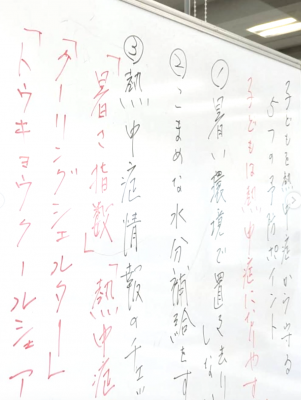 子どもを熱中症から守る
5つの予防ポイント
子どもは熱中症になりやす
① 暑い環境で置き去りに
しな
② こまめな水分補給をす
③ 熱中症情報のチェッ
「暑さ指数」「熱中症
「クーリングシェルター」
「トウキョウクールシェア